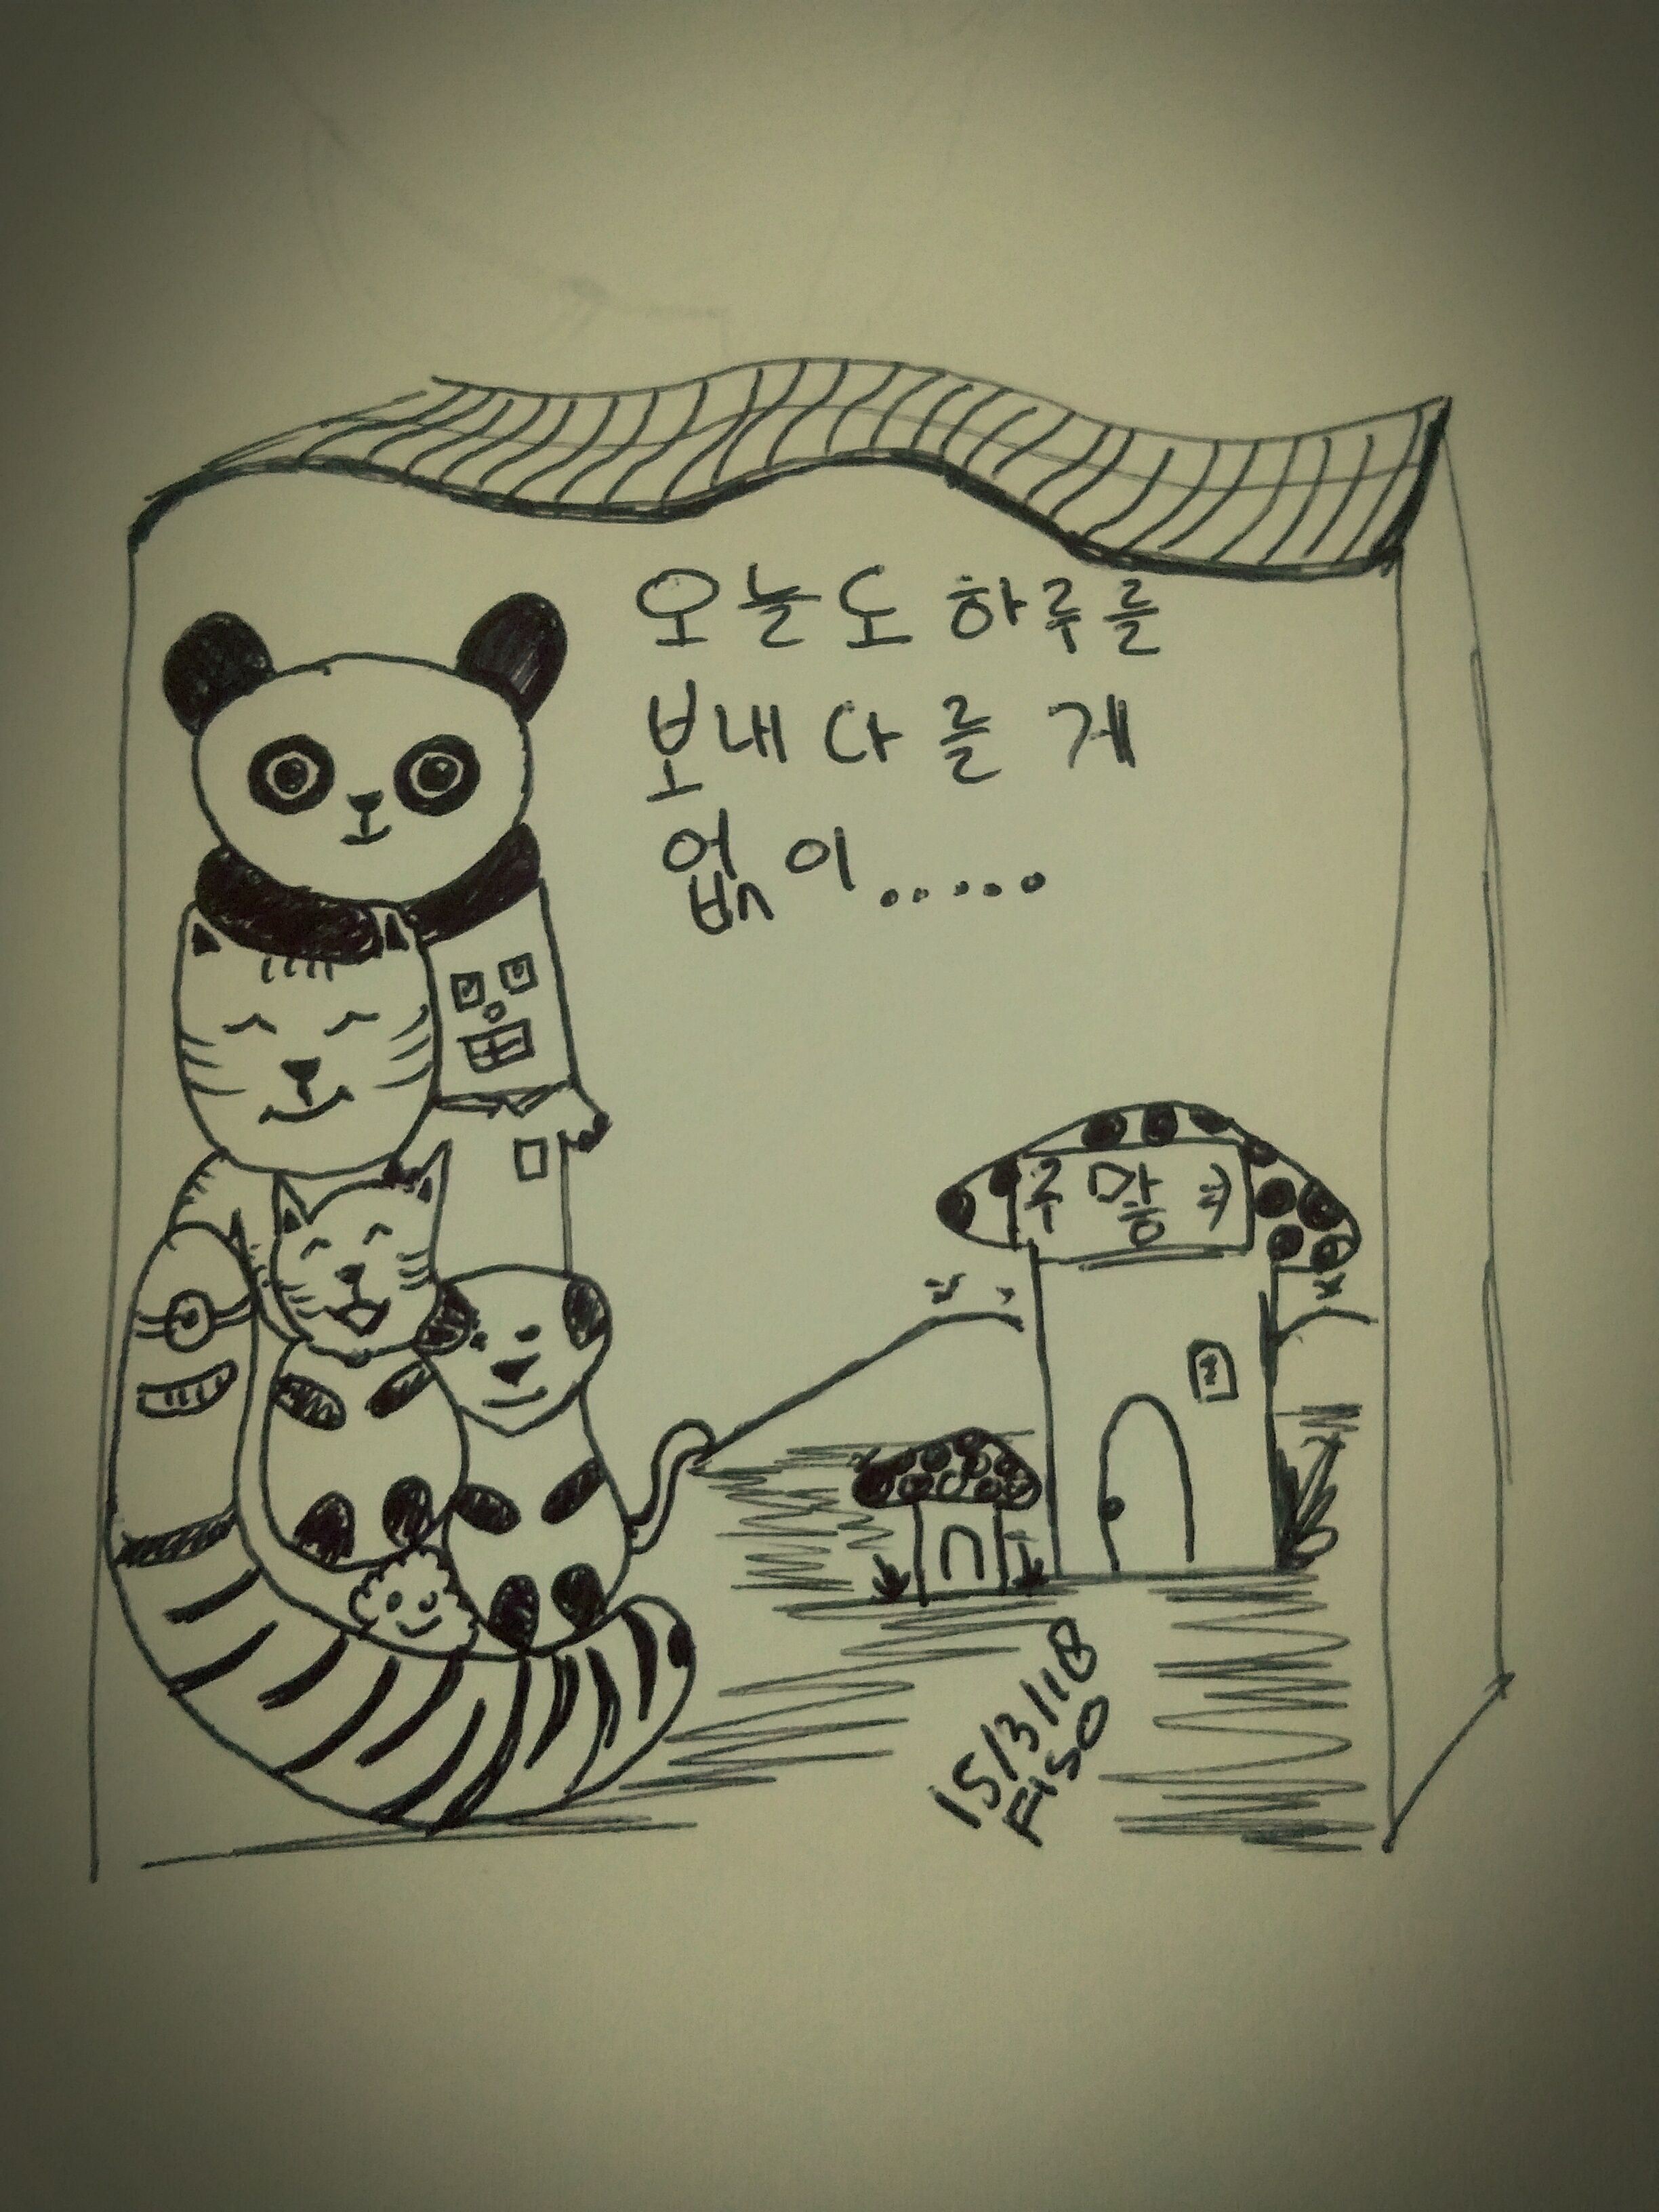 오늘도 하루를
보내 다를 게
없이.....
15/3/18
FISO